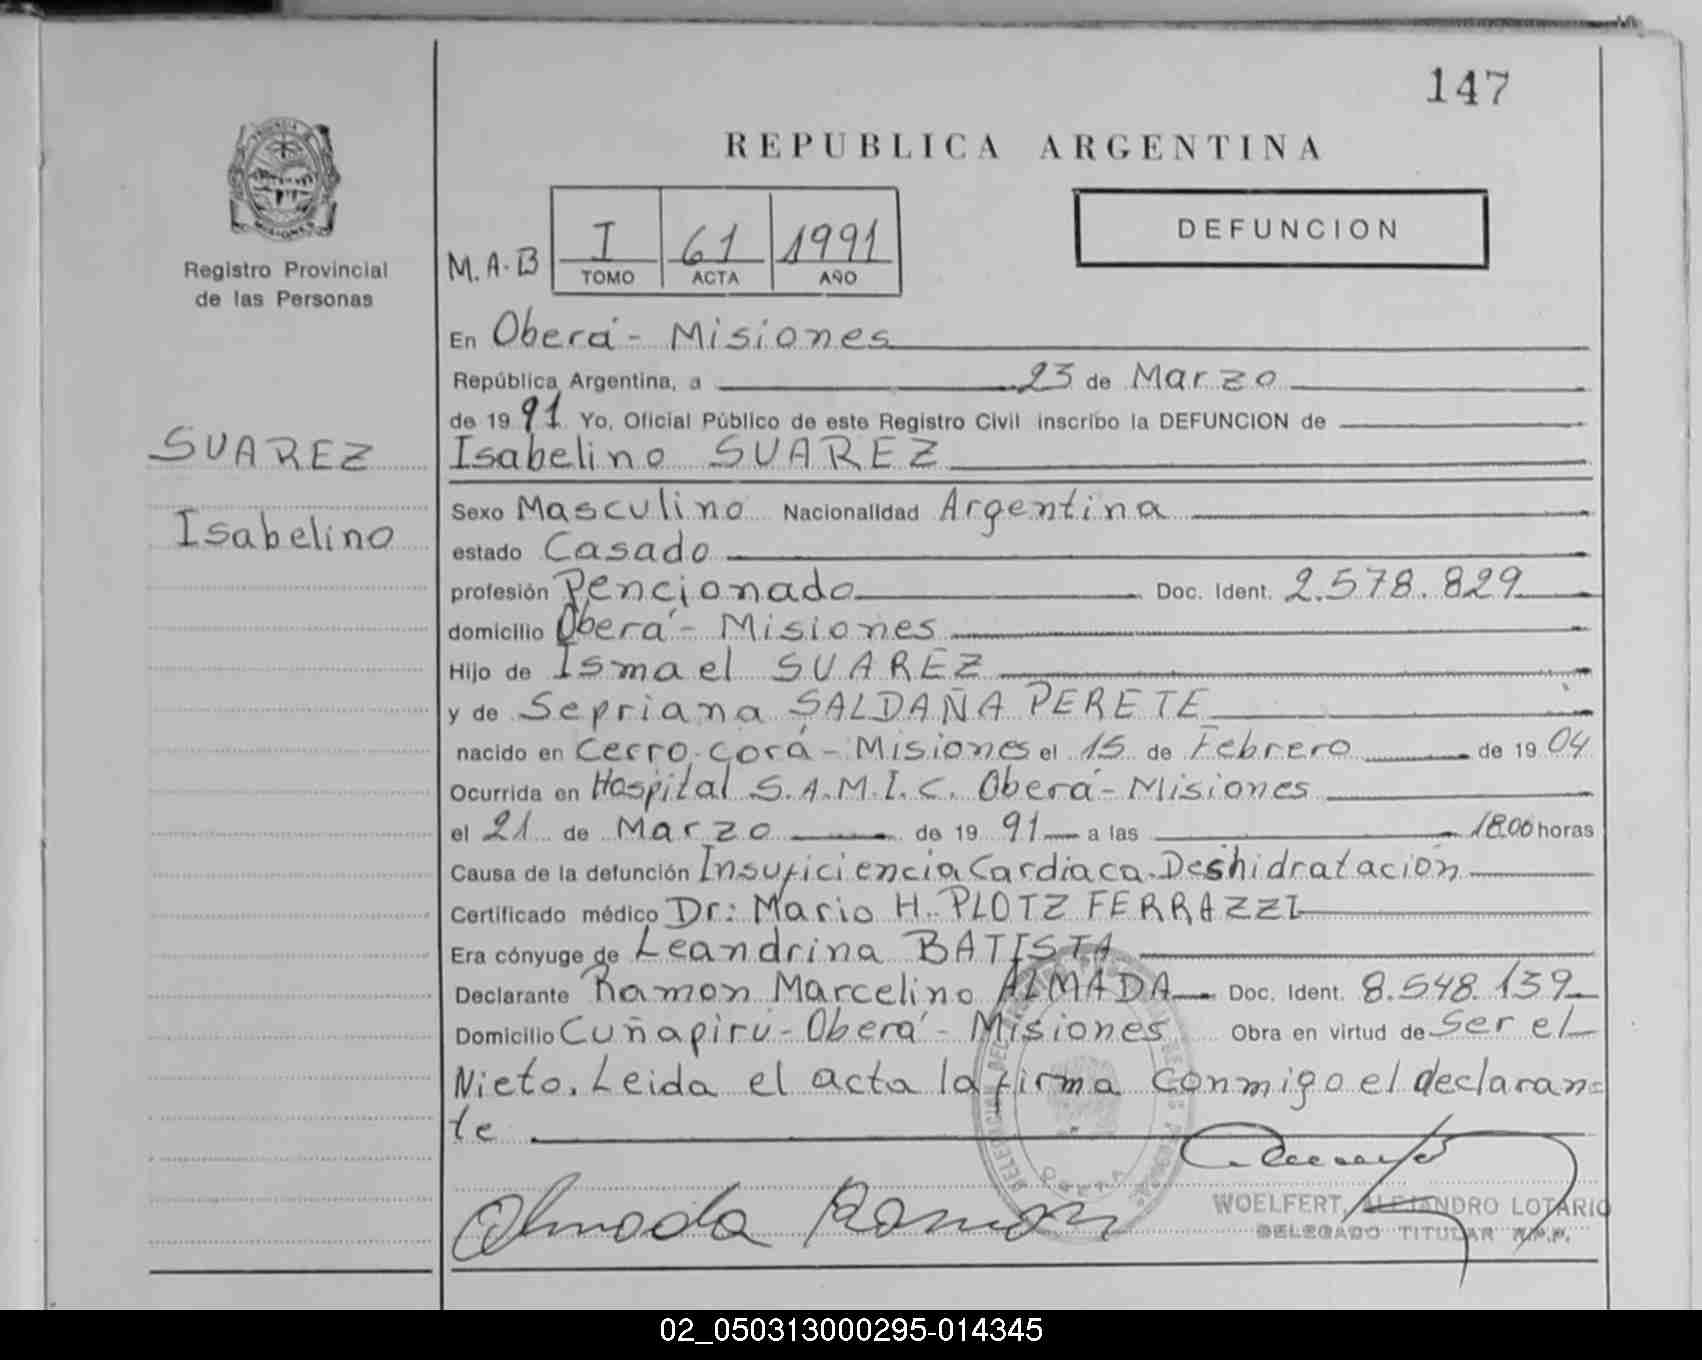 147
REPUBLICA ARGENTINA
DEFUNCION
PROVINCIA D
MISIONES
Registro Provincial
de las Personas
M.A.B
I 61 1991
TOMO ACTA AÑO
En Oberá - Misiones
República Argentina, a 23 de Marzo
de 1991 Yo, Oficial Público de este Registro Civil inscribo la DEFUNCION de
Isabelino SUAREZ
SUAREZ
Isabelino
Sexo Masculino Nacionalidad Argentina
estado Casado
profesión Pencionado Doc. Ident. 2.578.829
domicilio Oberá - Misiones
Hijo de Ismael SUAREZ
y de Sepriana SALDAÑA PERETE
nacido en Cerro-Corá - Misiones el 15 de Febrero de 1904
Ocurrida en Hospital S.A.M.I.C. Oberá - Misiones
el 21 de Marzo de 1991 a las 18.00 horas
Causa de la defunción Insuficiencia Cardiaca. Deshidratación
Certificado médico Dr: Mario H. PLOTZ FERRAZZI
Era cónyuge de Leandrina BATISTA
Declarante Ramon Marcelino ALMADA Doc. Ident. 8.548.139
Domicilio Cuñapirú - Oberá - Misiones Obra en virtud de Ser el
Nieto. Leida el acta la firma conmigo el declaran=
te
Almada Ramon
OBERA
WOELFERT, ALEJANDRO LOTARIO
DELEGADO TITULAR R.P.P.
02_050313000295-014345